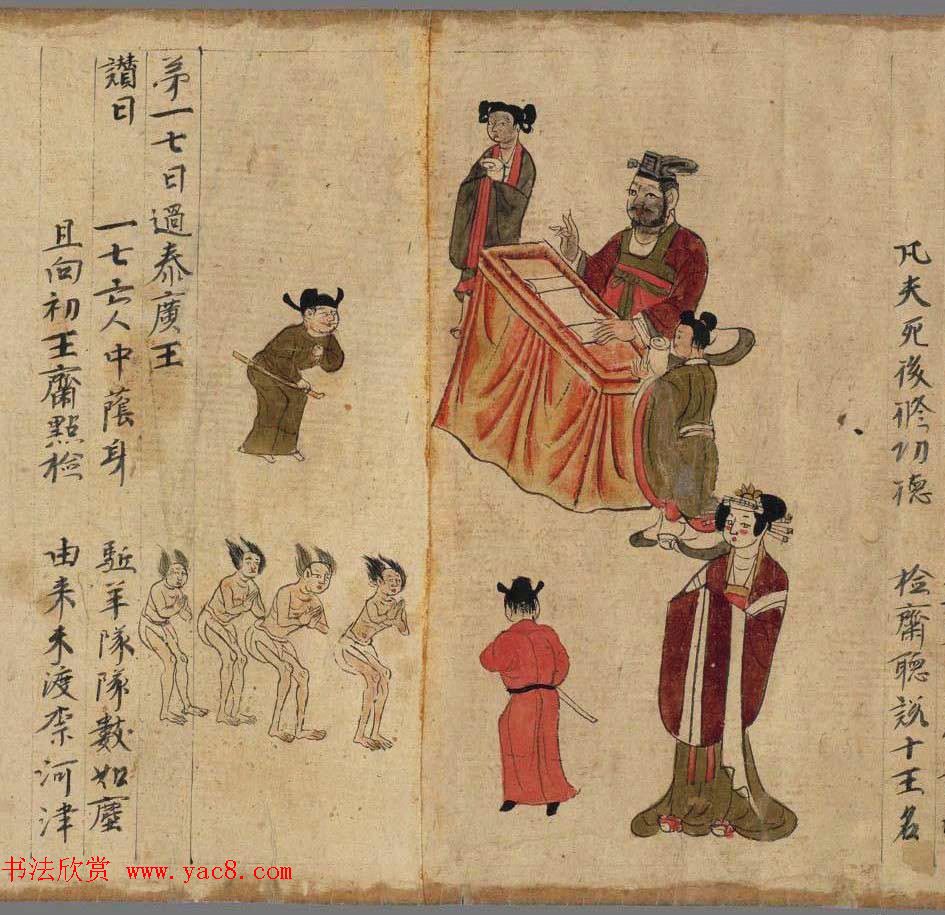 凡夫死後修功德 检齋聴說十王名
苐一七日過泰廣王
讃曰 一七亡人中蔭身 駈羊隊隊數如塵
且向初王齋點检 由来未渡柰河津
书法欣赏 www.yac8.com